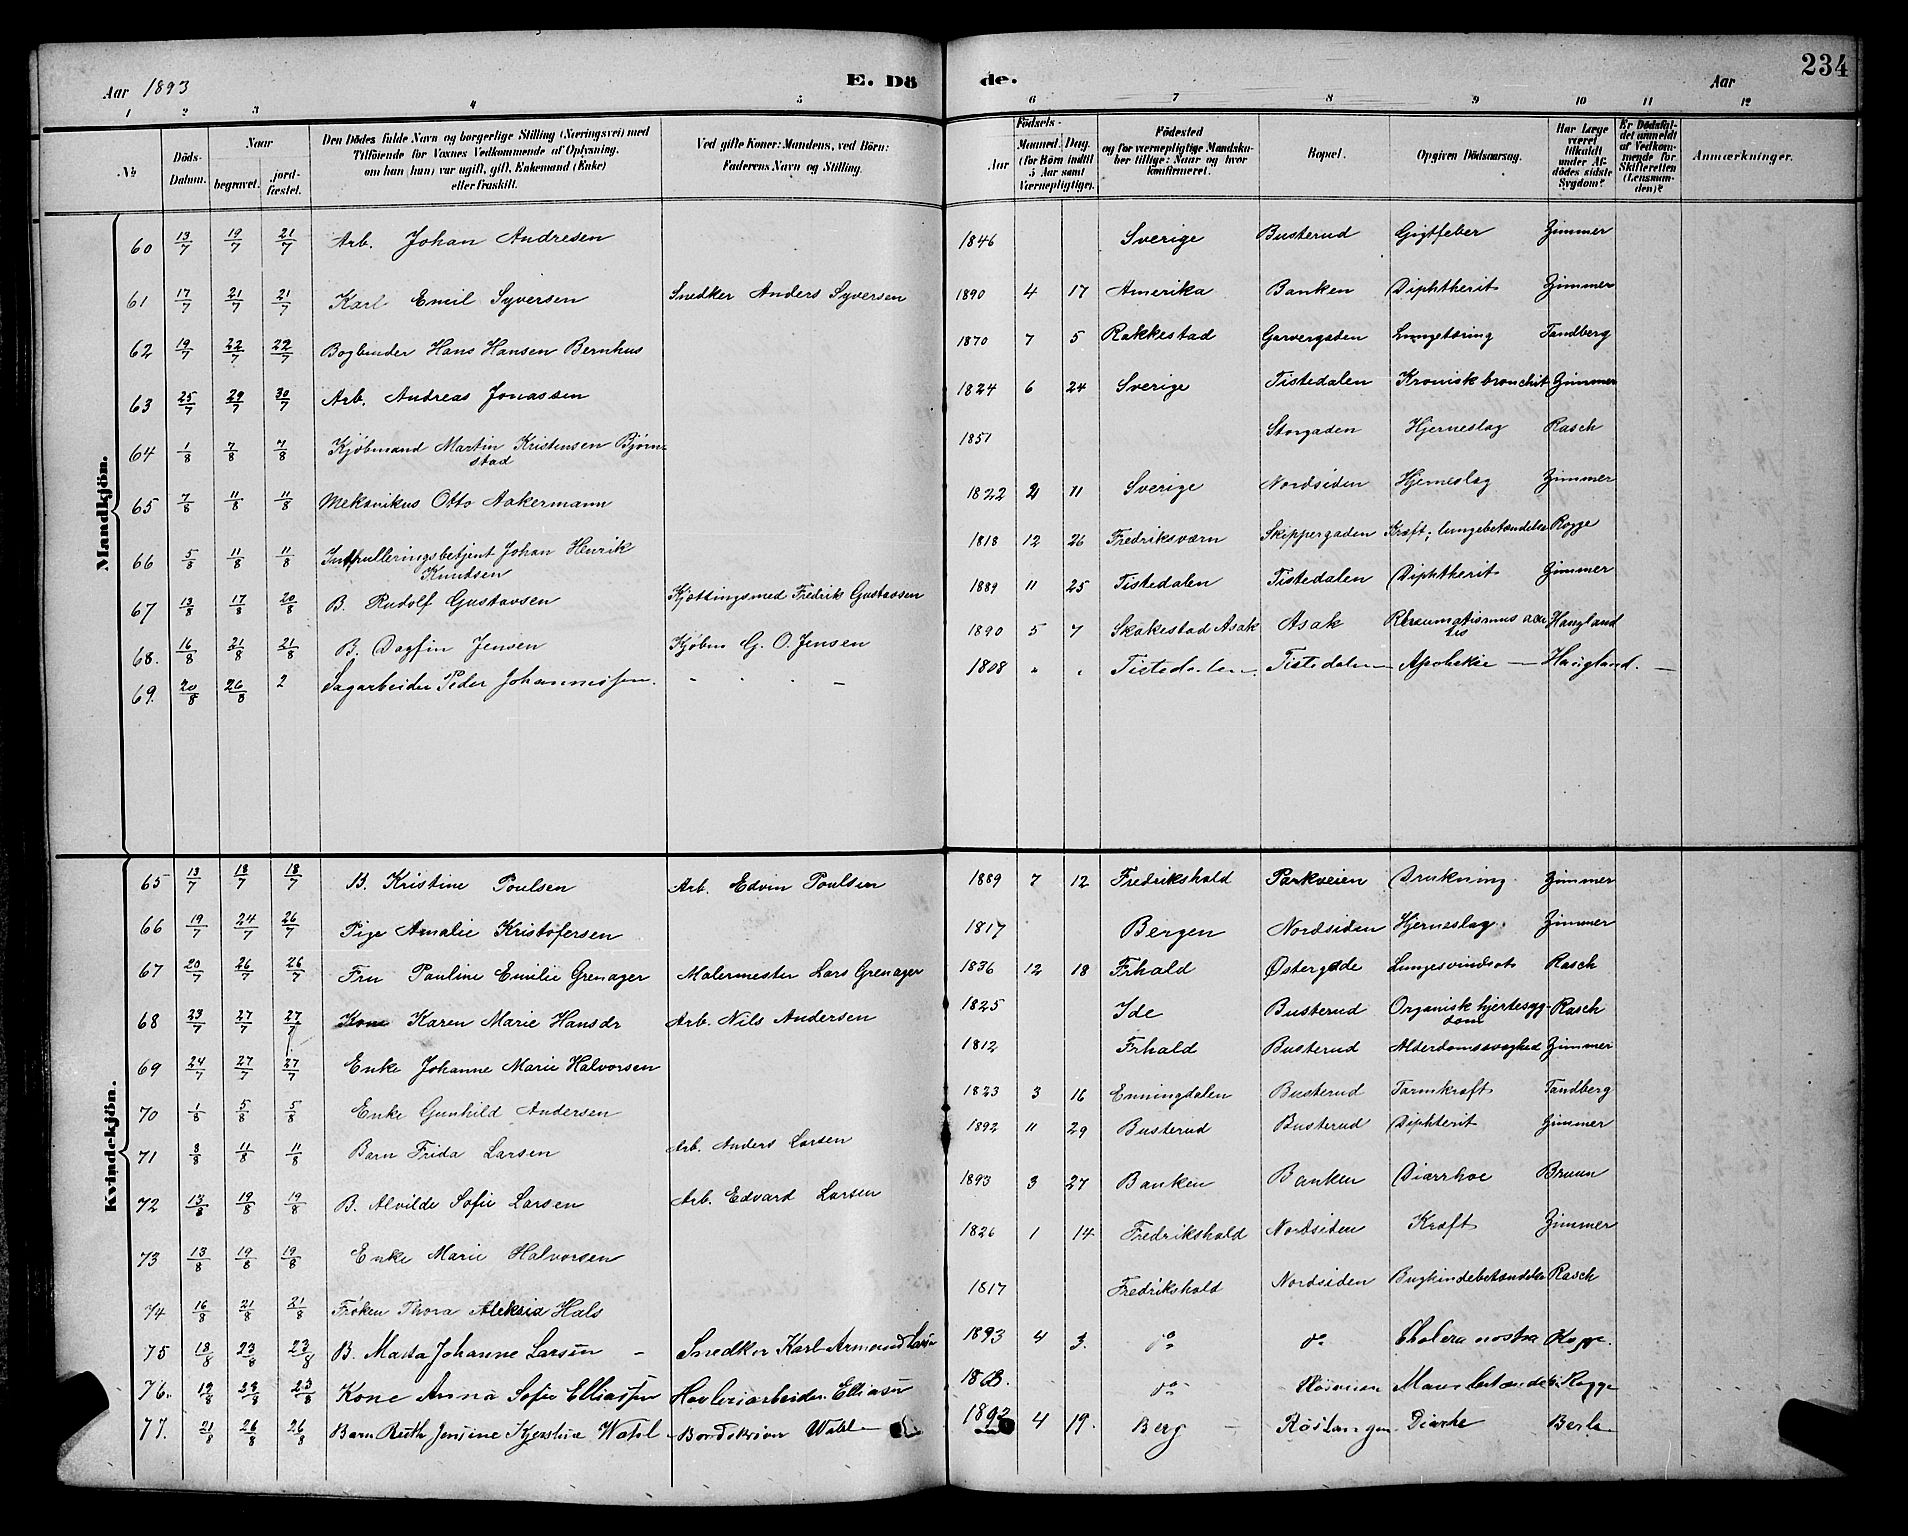 Aar 1893
E. Dö de.
Aar
234
1 2 3 4 5 6 7 8 9 10 11 12
№
Döds-Datum.
Naar begravet. jord-fæstet.
Den Dödes fulde Navn og borgerlige Stilling (Næringsvei) med Tilföiende for Voxnes Vedkommende af Oplysning, om han (hun) var ugift, gift, Enkemand (Enke) eller fraskilt.
Ved gifte Koner: Mandens, ved Börn: Faderens Navn og Stilling.
Födsels-
Aar
Maaned. Dag. (for Börn indtil 5 Aar samt Værnepligtige).
Födested og for værnepligtige Mandskaber tillige: Naar og hvor konfirmeret.
Bopæl.
Opgiven Dödsaarsag.
Har Læge været tilkaldt under Afdödes sidste Sygdom?
Er Dödsfaldet anmeldt af Vedkommende for Skifteretten (Lensmanden)?
Anmærkninger.
Mandkjön.
60 13/7 19/7 21/7 Arb. Johan Andresen 1846 Sverige Busterud Gigtfeber Zimmer
61 17/7 21/7 21/7 Karl Emil Syversen Snedker Anders Syversen 1890 4 17 Amerika Banken Diphtherit Zimmer
62 19/7 22/7 22/7 Bogbinder Hans Hansen Bernhus 1870 7 5 Rakkestad Garvergaden Lungetæring Tandberg
63 25/7 29/7 30/7 Arb. Andreas Jonassen 1824 6 24 Sverige Tistedalen Kronisk bronchit Zimmer
64 1/8 7/8 7/8 Kjöbmand Martin Kristensen Bjørnstad 1851 Storgaden Hjerneslag Rasch
65 7/8 11/8 11/8 Mekanikus Otto Aakermann 1822 2 11 Sverige Nordsiden Hjerneslag Zimmer
66 5/8 11/8 11/8 Johan Henrik Knudsen 1818 12 26 Fredriksværn Skippergaden Kræft; lungebetændelse Rogge
67 13/8 17/8 20/8 B. Rudolf Gustavsen Fredrik Gustavsen 1889 11 25 Tistedalen Tistedalen Diphtherit Zimmer
68. 16/8 21/8 21/8 B. Dagfin Jensen Kjöbm G. O. Jensen 1890 5 7 Skakestad Asak Asak Rheumatismus acutis Haugland
69. 20/8 26/8 2 Sagarbeider Peder Johannessen. 1808 " " Tistedalen. Tistedalen Apoplexie Haugland.
Kvindekjön.
65 13/7 18/7 18/7 B. Kristine Poulsen Arb. Edvin Poulsen 1889 7 12 Fredrikshald Parkveien Drukning. Zimmer
66 19/7 24/7 26/7 Pige Amalie Kristofersen 1817 Bergen Nordsiden Hjerneslag. Zimmer
67 20/7 26/7 26/7 Fru Pauline Emilie Grenager Malermester Lars Grenager 1836 12 18 Frhald Østergade Lungesvindsot Rasch
68 23/7 27/7 27/7 Kone Karen Marie Hansdr Arb. Nils Andersen 1825 Ide Busterud Organisk hjertesygdom Rasch
69 24/7 27/7 27/7 Enke Johanne Marie Halvorsen 1812 Frhald Busterud Alderdomssvaghed Zimmer
70 1/8 5/8 5/8 Enke Gunhild Andersen 1823 3 16 Enningdalen Busterud Tarmkræft Tandberg
71 8/8 11/8 11/8 Barn Frida Larsen Arb. Anders Larsen 1892 11 29 Busterud Busterud Diphterit Zimmer
72 13/8 19/8 19/8 B. Alvilde Sofie Larsen Arb. Edvard Larsen 1893 3 27 Banken Banken Diarrhoe Bruun
73 13/8 19/8 19/8 Enke Marie Halvorsen 1826 1 14 Fredrikshald Nordsiden Kræft Zimmer
74 16/8 21/8 21/8 Frøken Thora Aleksia Hals 1817 Fredrikshald Nordsiden Bughindebetændelse Rasch
75 18/8 23/8 23/8 B. Marta Johanne Larsen Snedker Karl Armand Larsen 1893 4 3. do do Cholera nostra Rogge.
76. 19/8 23/8 23/8 Kone Anna Sofie Elliassen Høvleriarbeider Elliasen do Rogge
77. 21/8 26/8 26/8 Barn Ruth Jensine Kjerstine Wahl Bordskriver Wahl 4 19. Berg Diarhe